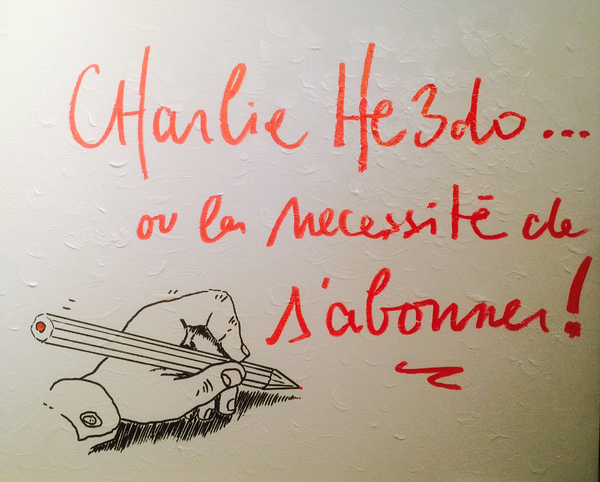 Charlie Hebdo...
ou la necessité de
s'abonner!